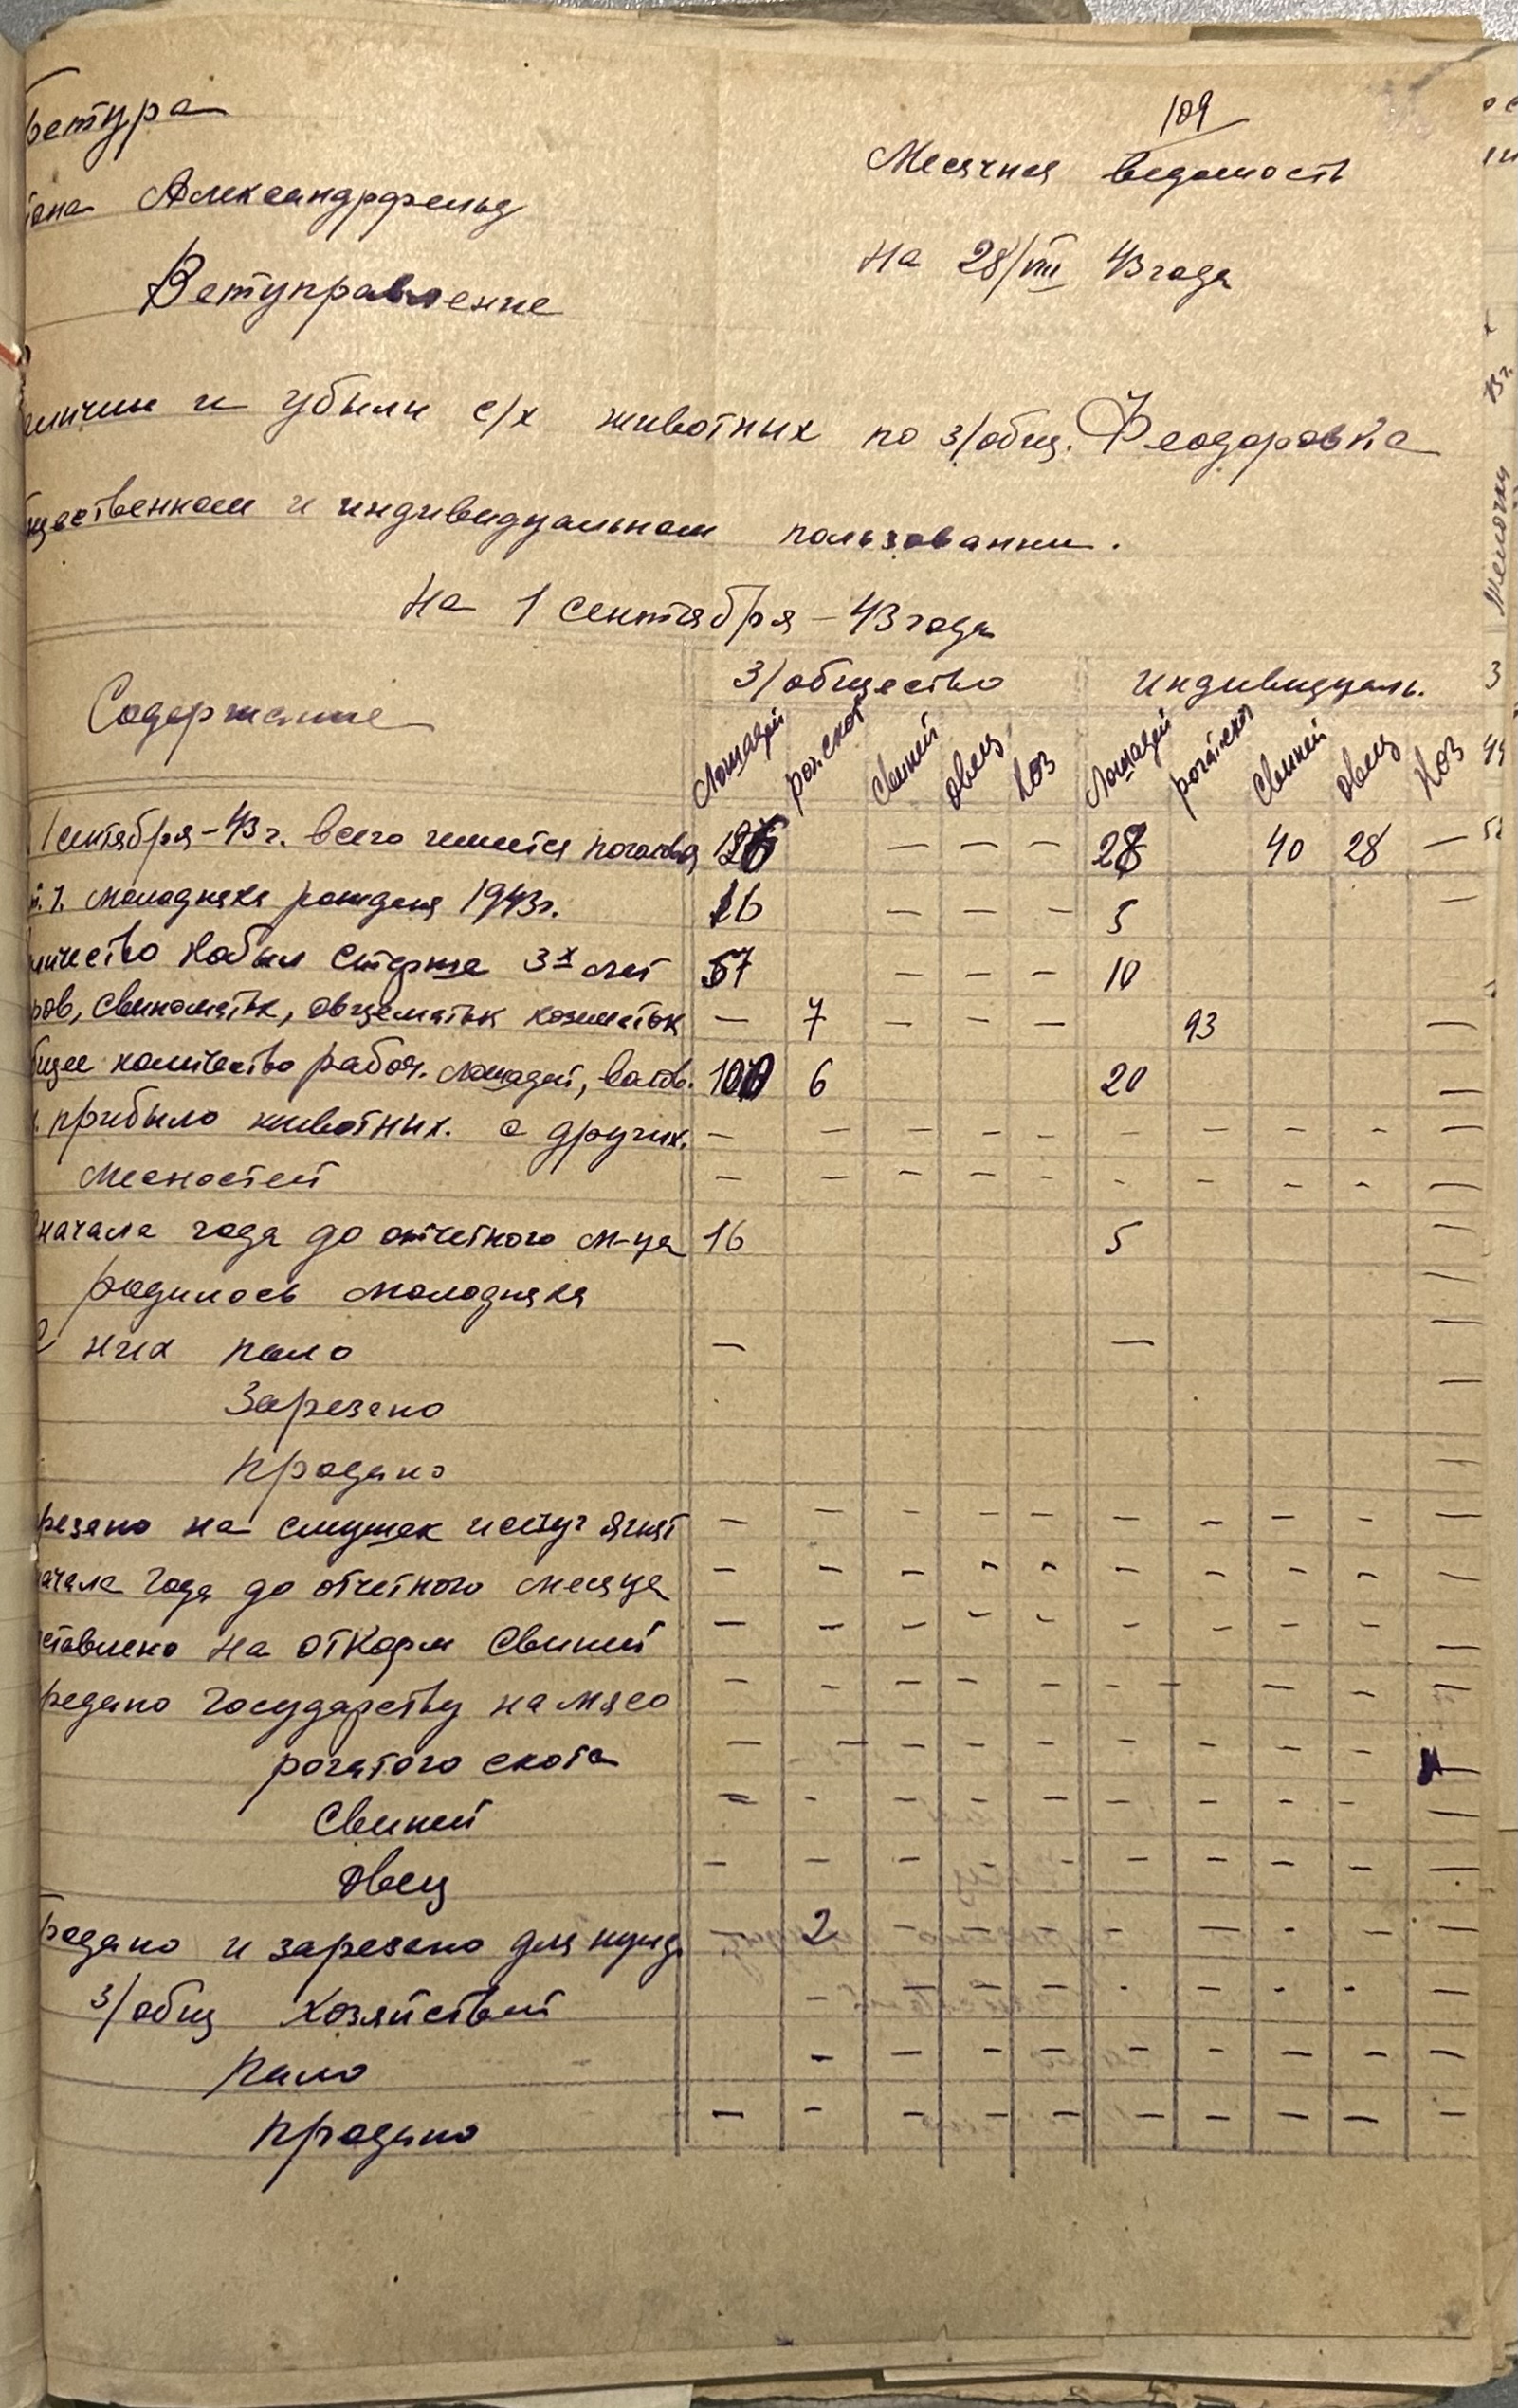 ветура
109
Месячная ведомость
тона Александрфельд
Ветуправление
на 28/VIII 43 года
аличии и убыли с/х животных по з/общ. Феодоровка
щественном и индивидуальном пользовании.
на 1 сентября – 43 года
Содержание
З/общество
индивидуаль.
Лошадей рог.скот свиней овец коз Лошадей рогат.скот свиней овец коз
1 сентября – 43 г. всего имеется поголовья 126 — — — 28 40 28 —
т.ч. молодняка рождения 1943г. 16 — — — 5 —
личество кобыл старше 3х лет 57 — — — 10
ров, свиноматок, овцематок козематок — 7 — — — 93 —
бщее количество рабоч. лошадей, волов. 100 6 20 —
прибыло животных. с других. — — — — — — — — — —
месностей — — — — — — — — — —
начала года до отчетного м-ца 16 5 —
родилось молодняка —
них пало — — —
Зарезано —
Продано —
резано на смушек и смуг ягнят — — — — — — — — — —
ачала года до отчетного месяца — — — — — — — — — —
ставлено на откорм свиней — — — — — — — — — —
редано государству на мясо — — — — — — — — — —
рогатого скота — — — — — — — — — —
Свиней — — — — — — — — — —
Овец — — — — — — — — —
редано и зарезано для нужд. — 2 — — — — — — — —
з/общ хозяйствей — — — — — — — — —
Пало — — — — — — — — —
Продано — — — — — — — — — —